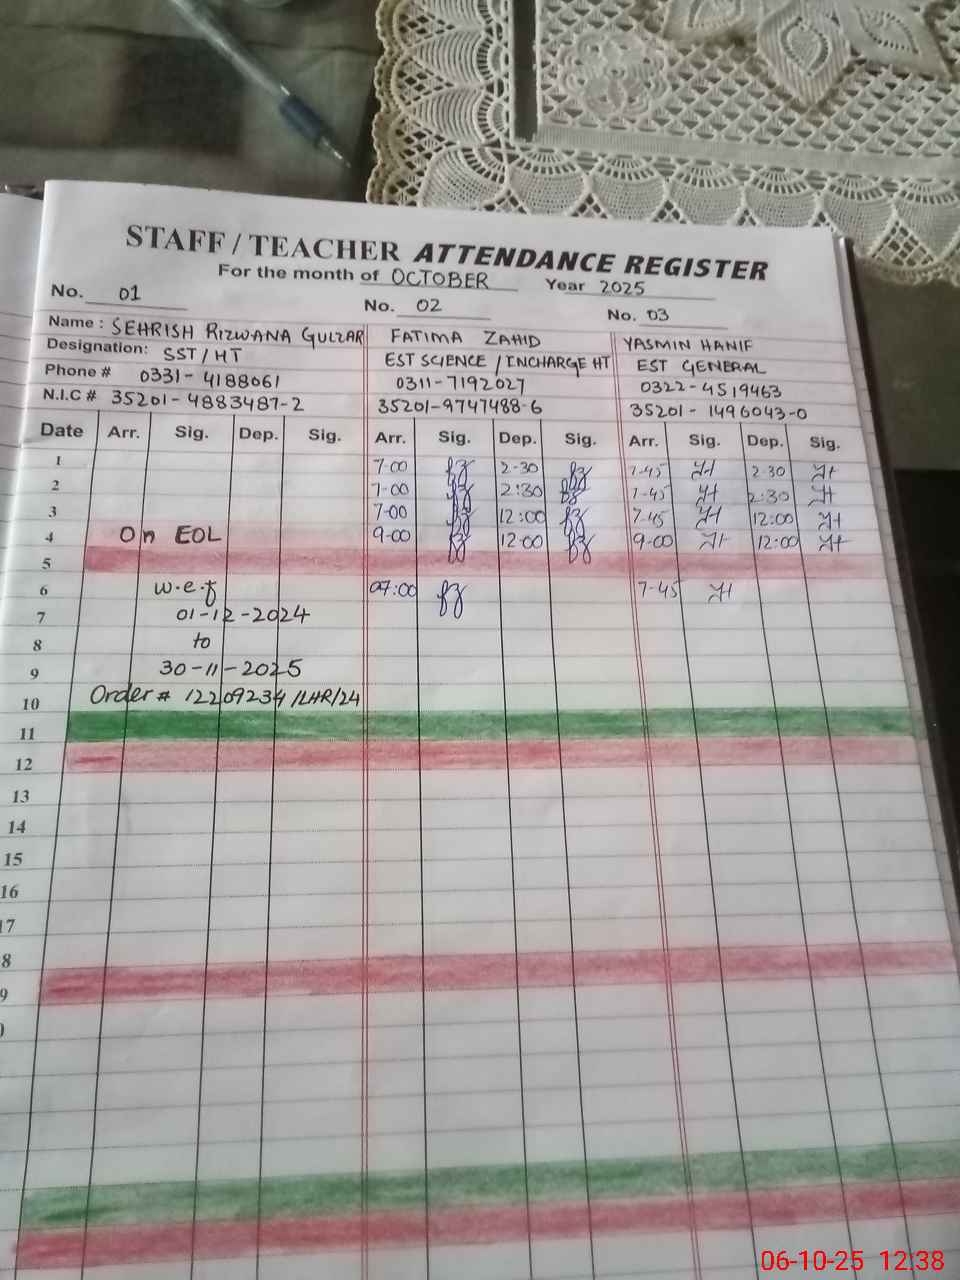 STAFF / TEACHER ATTENDANCE REGISTER
For the month of OCTOBER Year 2025
No. 01 No. 02 No. 03
Name : SEHRISH RIZWANA GULZAR FATIMA ZAHID YASMIN HANIF
Designation: SST/HT EST SCIENCE / INCHARGE HT EST GENERAL
Phone # 0331-4188061 0311-7192027 0322-4519463
N.I.C # 35201-4883487-2 35201-9747488-6 35201-1496043-0
Date Arr. Sig. Dep. Sig. Arr. Sig. Dep. Sig. Arr. Sig. Dep. Sig.
1 7-00 2-30 7-45 2-30
2 7-00 2:30 7-45 2:30
3 7-00 12:00 7-45 12:00
4 On EOL 9-00 12-00 9-00 12:00
5
6 w.e.f 07:00 7-45
7 01-12-2024
8 to
9 30-11-2025
10 Order # 12209234/LHR/24
11
12
13
14
15
16
17
8
9
06-10-25 12:38